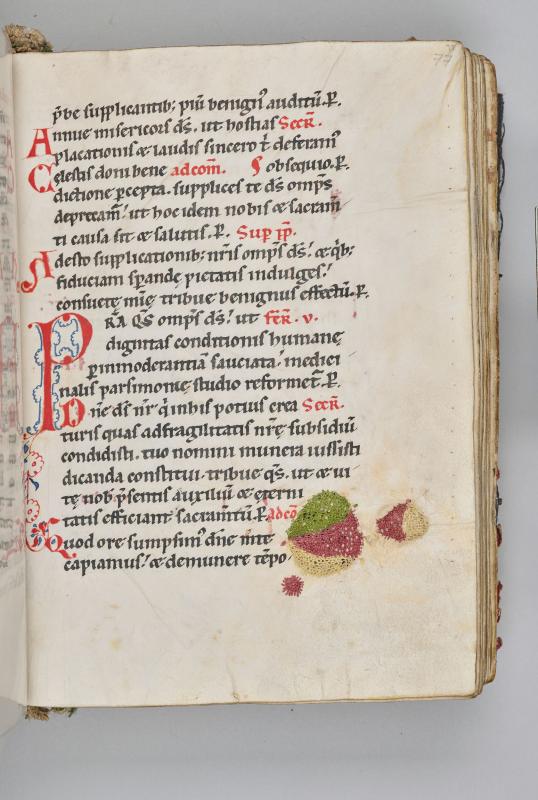 77
p̄be supplicantib; piū benign᷒ auditū. P̲.
Annue misericors ds̄. ut hostias Secr̄.
placationis & laudis sincero t̄ deferam᷒
Celestis doni bene adcom̄. obsequio. P̲.
dictione p̲cepta. supplices te ds̄ omp̄s
deprecam᷒. ut hoc idem nobis & sacram̄
ti causa sit & salutis. P̲. Sup pp̄.
Adesto supplicationib; nr̄is omp̄s ds̄. & q̄b;
fiduciam sp̲andę pietatis indulges.
consuetę mīę tribue benignus effectū. P̲.
PRA QS omp̄s ds̄. ut fer̄. v.
dignitas conditionis humanę
p̲ inmoderantiā sauciata. medici
nalis parsimonię studio reformet᷒. P̲.
Dn̄e ds̄ nr̄ q̄ in his potius crea Secr̄.
turis quas ad fragilitatis nr̄ę subsidiū
condidisti. tuo nomini munera iussisti
dicanda constitui. tribue qs̄. ut & vi
tę nob̄ p̄sentis auxiliū & eterni
tatis efficiant sacram̄tū. P̲. adcō
Quod ore sumpsim᷒ dn̄e m̄te
capiamus. & de munere tēpo